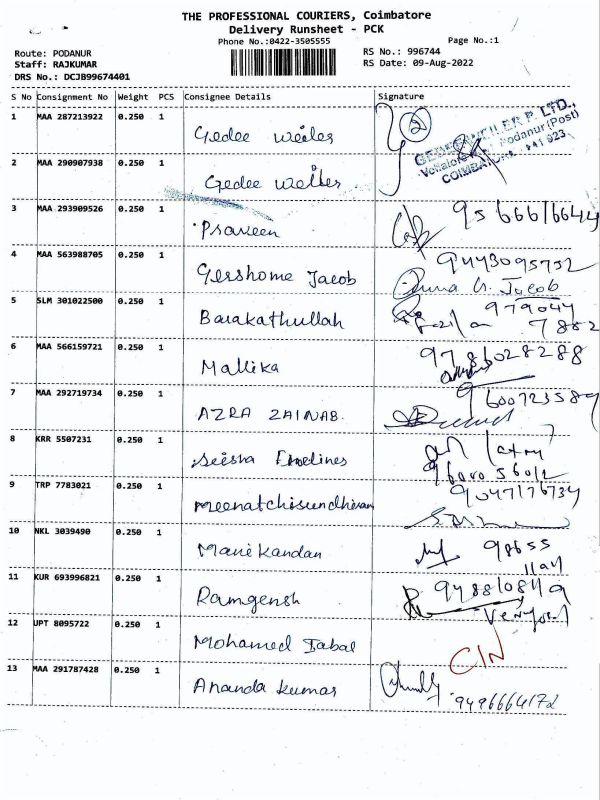 THE PROFESSIONAL COURIERS, Coimbatore
Delivery Runsheet - PCK
Phone No.:0422-3505555
Page No.:1
Route: PODANUR
Staff: RAJKUMAR
DRS No.: DCJB99674401
RS No.: 996744
RS Date: 09-Aug-2022
S No Consignment No Weight PCS Consignee Details Signature
1 MAA 287213922 0.250 1 Gedee weiler 2
GEDEE WEILER P. LTD.,
Podanur (Post)
COIMBATORE - 641 023
2 MAA 290907938 0.250 1 Gedee weiler
3 MAA 293909526 0.250 1 Praveen 9566616644
4 MAA 563988705 0.250 1 Gershome Jacob 9443095752
Jacob
5 SLM 301022500 0.250 1 Barakathullah 979044
7882
6 MAA 566159721 0.250 1 Mallika 9786028288
7 MAA 292719734 0.250 1 AZRA ZAINAB. 9600723589
8 KRR 5507231 0.250 1
9 TRP 7783021 0.250 1 Meenatchisundhiram 9047176734
10 NKL 3039490 0.250 1 Manikandan 98655
11 KUR 693996821 0.250 1 Ramgensh
12 UPT 8095722 0.250 1 Mohamed Iabal C/N
13 MAA 291787428 0.250 1 Ananda kumar